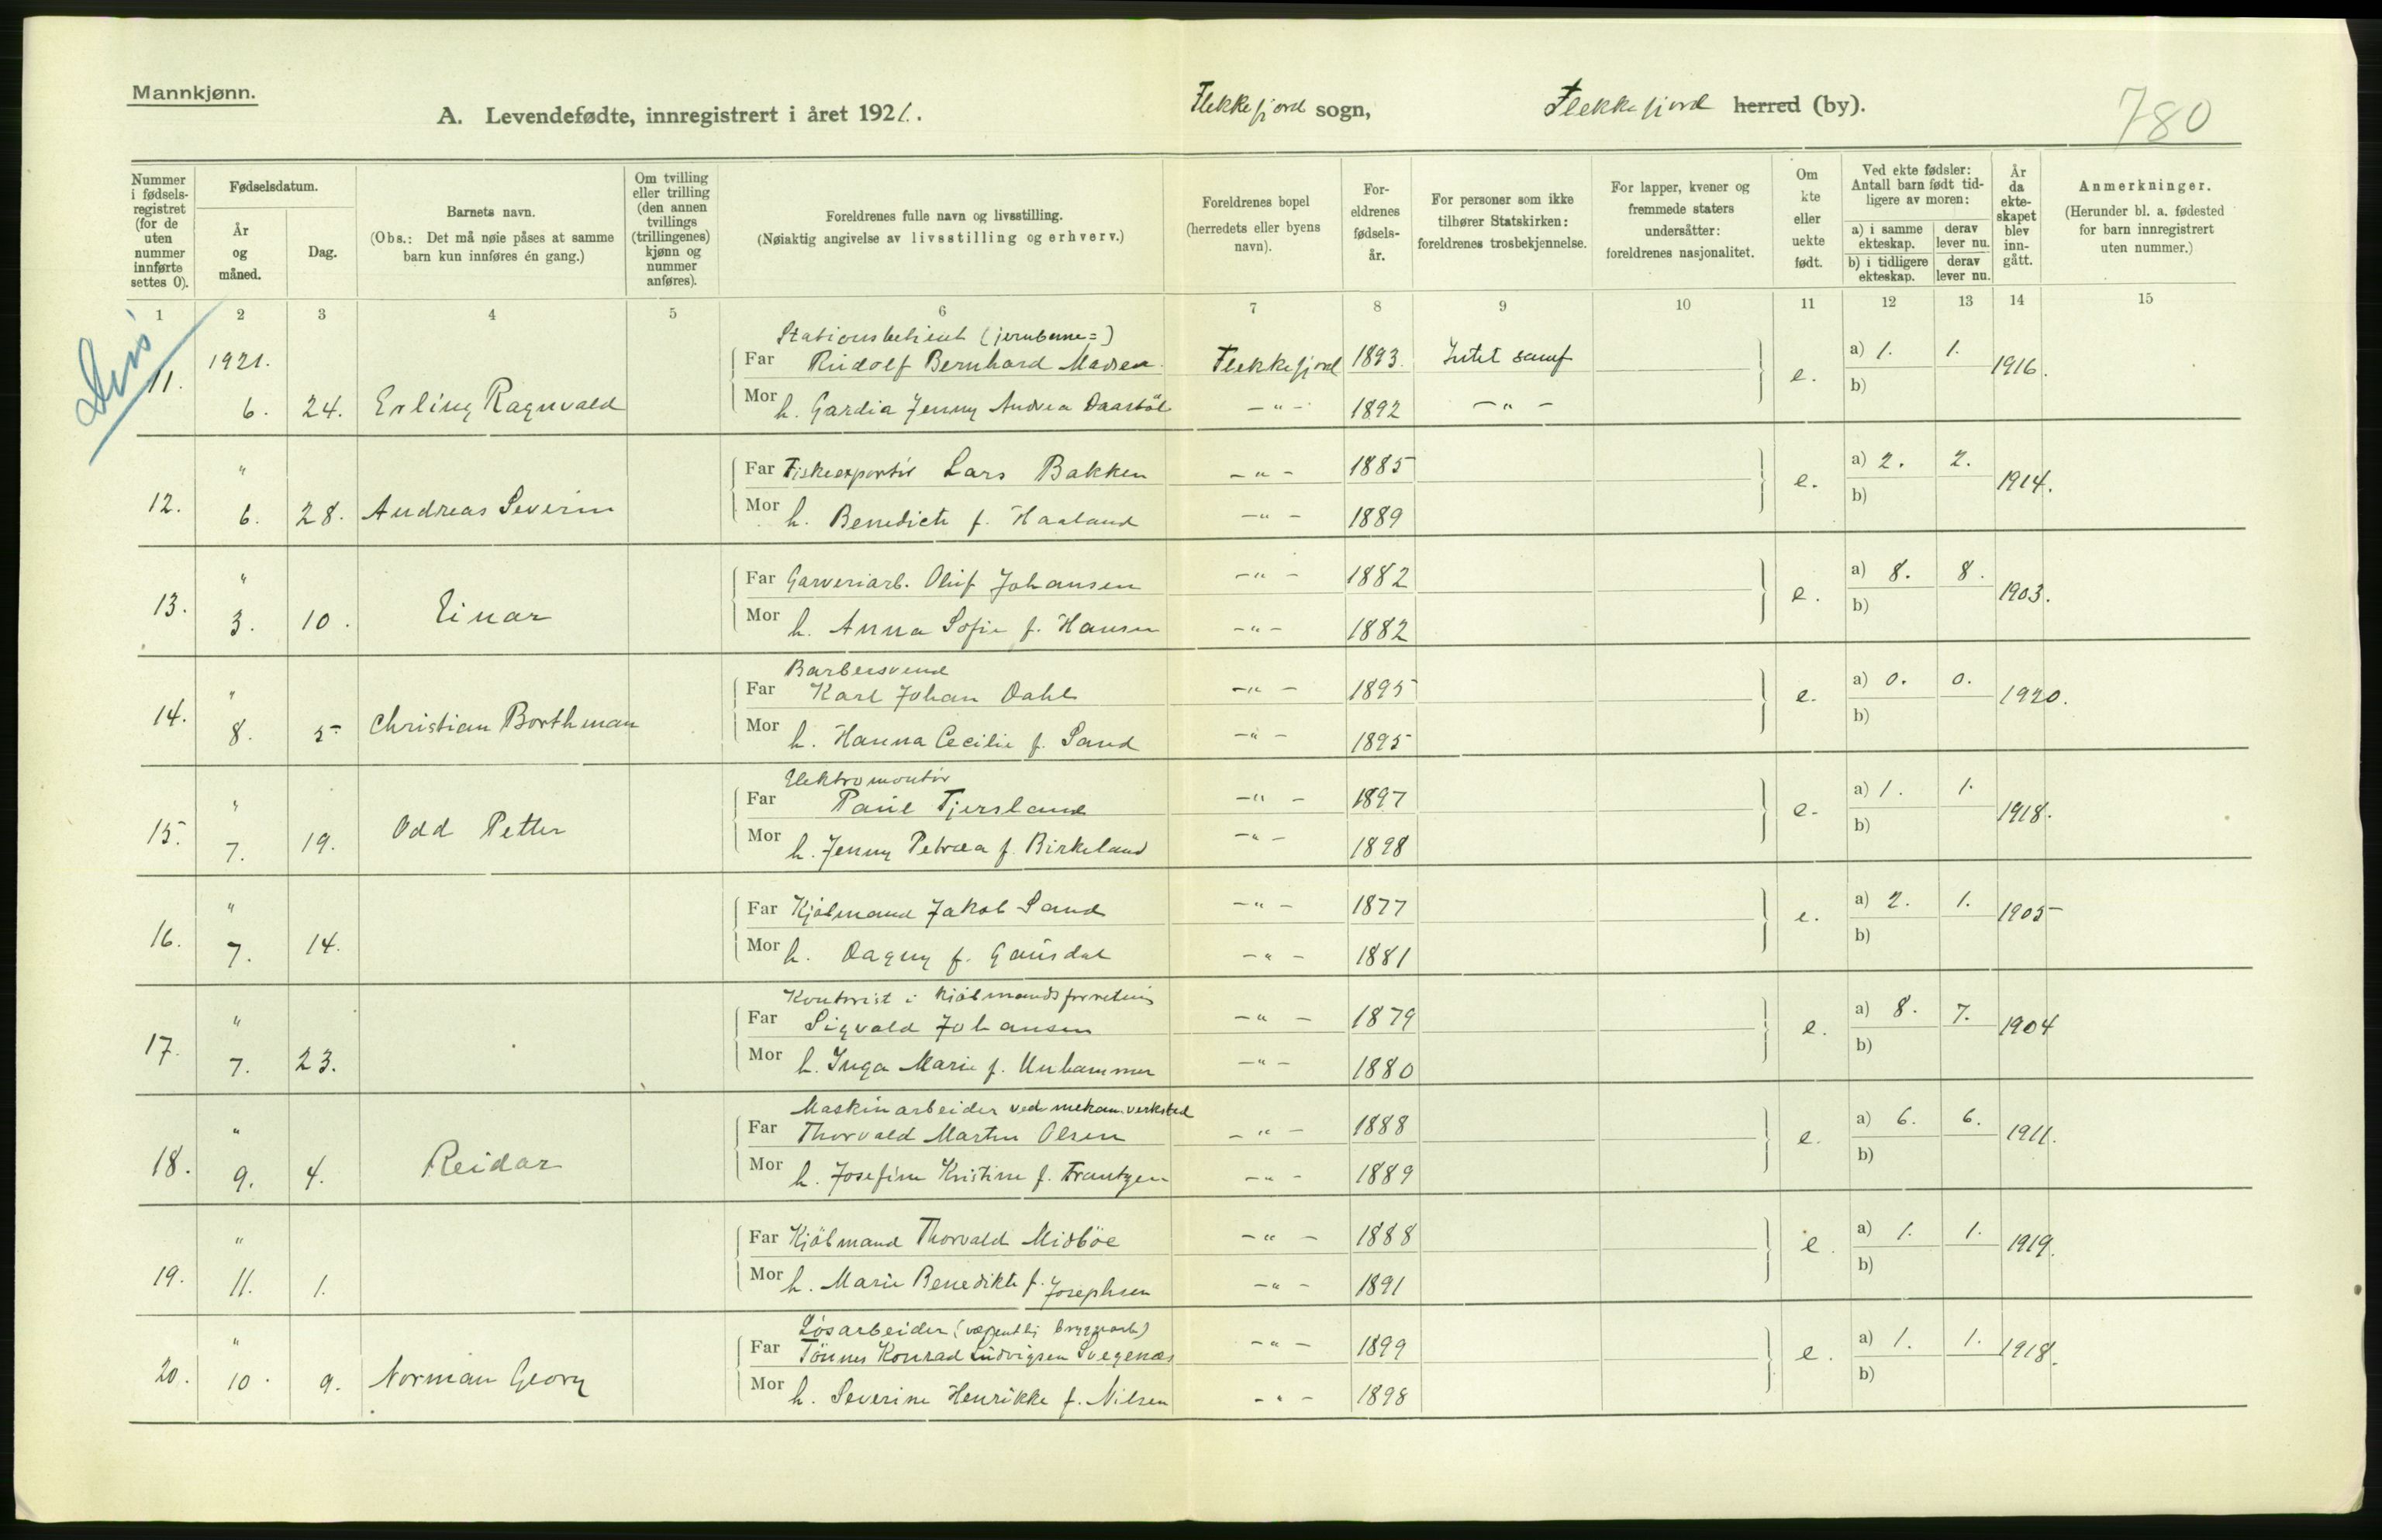 Mannkjønn.
A. Levendefødte, innregistrert i året 1921.
Flekkefjord sogn,
Flekkefjord herred (by).
780
Nummer i fødsels-registret (for de uten nummer innførte settes 0).
Fødselsdatum.
År og måned.
Dag.
Barnets navn.
(Obs.: Det må nøie påses at samme barn kun innføres én gang.)
Om tvilling eller trilling (den annen tvillings (trillingenes) kjønn og nummer anføres).
Foreldrenes fulle navn og livsstilling.
(Nøiaktig angivelse av livsstilling og erhverv.)
Foreldrenes bopel (herredets eller byens navn).
For-eldrenes fødsels-år.
For personer som ikke tilhører Statskirken: foreldrenes trosbekjennelse.
For lapper, kvener og fremmede staters undersåtter: foreldrenes nasjonalitet.
Om kte eller uekte født.
Ved ekte fødsler: Antall barn født tid-ligere av moren:
a) i samme ekteskap.
derav lever nu.
b) i tidligere ekteskap.
derav lever nu.
År da ekte-skapet blev inn-gått.
Anmerkninger.
(Herunder bl. a. fødested for barn innregistrert uten nummer.)
1 2 3 4 5 6 7 8 9 10 11 12 13 14 15
Stationsbetjent (jernbane=)
11. 1921. Far Rudolf Bernhard Madsen. Flekkefjord 1893. Intet samf e. a) 1. 1. 1916.
6. 24. Erling Ragnvald Mor h. Gardia Jenny Andrea Daastöl -"- 1892 -"- b)
" Far Fiskeexportör Lars Bakken -"- 1885 e. a) 2. 2. 1914.
12. 6. 28. Andreas Severin Mor h. Benedicte f. Haaland -"- 1889 b)
" Far Garveriarb. Oluf Johansen -"- 1882 e. a) 8. 8. 1903.
13. 3. 10. Einar Mor h. Anna Sofie f. Hansen -"- 1882 b)
Barbersvend
" Far Karl Johan Dahl -"- 1895 e. a) 0. 0. 1920.
14. 8. 5 Christian Borthman Mor h. Hanna Cecilie f. Sand -"- 1895 b)
Elektromontör
" Far Paul Tjersland -"- 1897 e. a) 1. 1. 1918.
15. 7. 19. Odd Petter Mor h. Jenny Petrea f. Birkeland -"- 1898 b)
" Far Kjöbmand Jakob Sand -"- 1877 e. a) 2. 1. 1905
16. 7. 14. Mor h. Dagny f. Gausdal -"- 1881 b)
Kontorist i kjöbmandsforretning
" Far Sigvald Johansen -"- 1879 e. a) 8. 7. 1904
17. 7. 23. Mor h. Inga Marie f. Unhammer -"- 1880 b)
Maskinarbeider ved mekan. verksted
" Far Thorvald Martin Olsen -"- 1888 e. a) 6. 6. 1911.
18. 9. 4. Reidar Mor h. Josefine Kristine f. Frantzen -"- 1889 b)
" Far Kjöbmand Thorvald Midböe -"- 1888 e. a) 1. 1. 1919.
19. 11. 1. Mor h. Marie Benedikte f. Josephsen -"- 1891 b)
Lösarbeider (væsentlig bryggearb)
" Far Tönnes Konrad Ludvigsen Svegenæs -"- 1899 e. a) 1. 1. 1918.
20. 10. 9. Norman Georg Mor h. Severine Henrikke f. Nilsen -"- 1898 b)